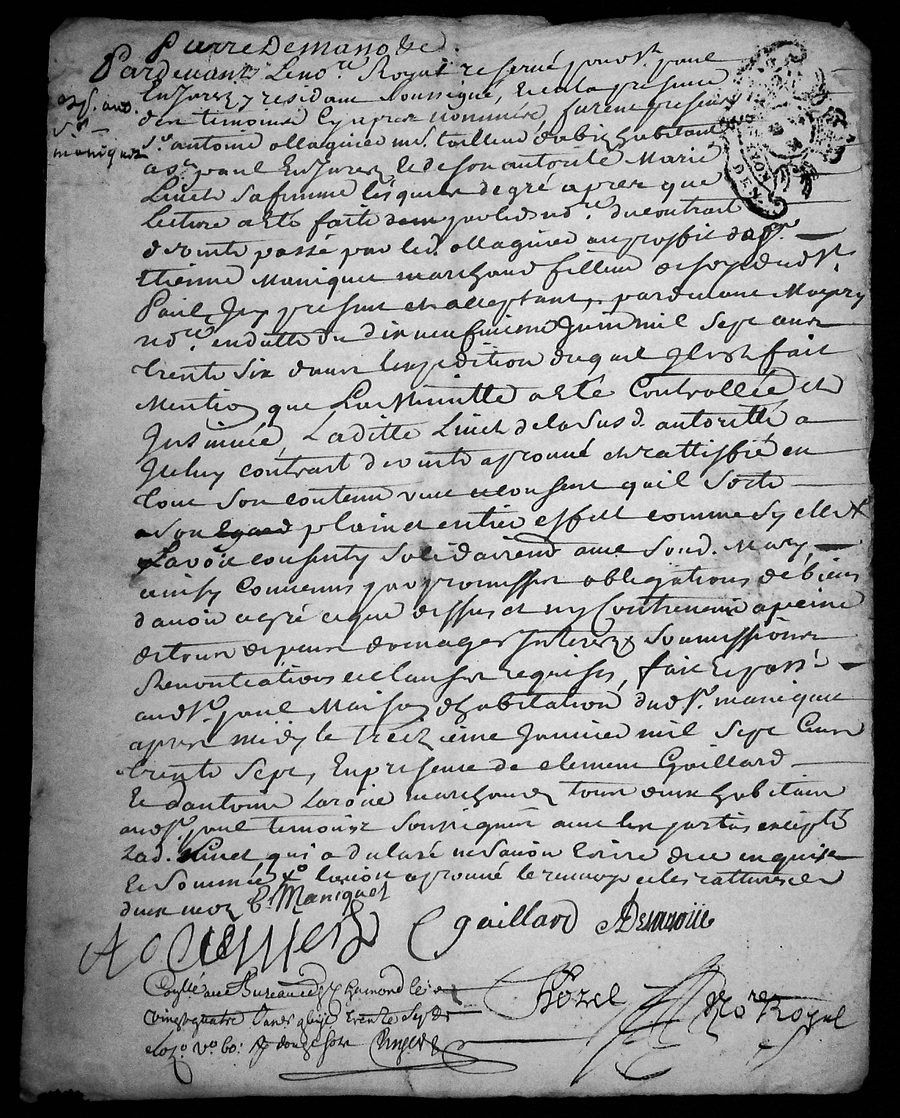 Pardevant Le nore Royal reservé pour st paul
En Jarez y residant soussigné, et en la presence
des temoins cy apres nommés, furent presens
sr antoine ollagnier me tailleur d'habitz habitant
a st paul En Jarez & de son autorité Marie
Linet sa femme lesquels de gré apres que
lecture a Eté faite par led nore du contrat
de vente passé par led. ollagnier au proffit de sr
Etienne Maniquet marchand de st
Paul Icy present et acceptant, pardevant
nore en datte du dix neufvieme Juin mil sept cent
trente six dans l'expedition duquel Il est fait
Mention que La Minutte a Eté Controllée et
Insinuée, Laditte Linet de la susd. autorité a
Iceluy contrat de vente aprouvé et rattiffié en
tout son contenu veut et consent qu'il sorte
son plain et entier effet comme sy elle
L'avoit consenty solidairement avec sond. Mary
ainsy convenus par promesses obligations de biens
d'avoir agreé ce que dessus et ny Contrevenir a peine
de tous depens domages Interez soumissions
Renontiations et clauses requises, fait et passé
aud st. paul Maison d'habitation dud sr. maniquet
apres midy le treizieme Janvier mil sept Cent
trente sept, En presence de clement Gaillard
Et d'antoine marchands tous deux habitans
aud st. paul temoins soussignés avec les parties excepté
Lad. Linet qui a declaré ne savoir Ecrire de ce enquise
Et Sommée aprouvé le renvoy et les ratture
d'un mot E. Maniquet
Cgaillard
Controllé au Bureau de st chamond le
vingt quatre Janvier trente sept
douze sols
nore Royal